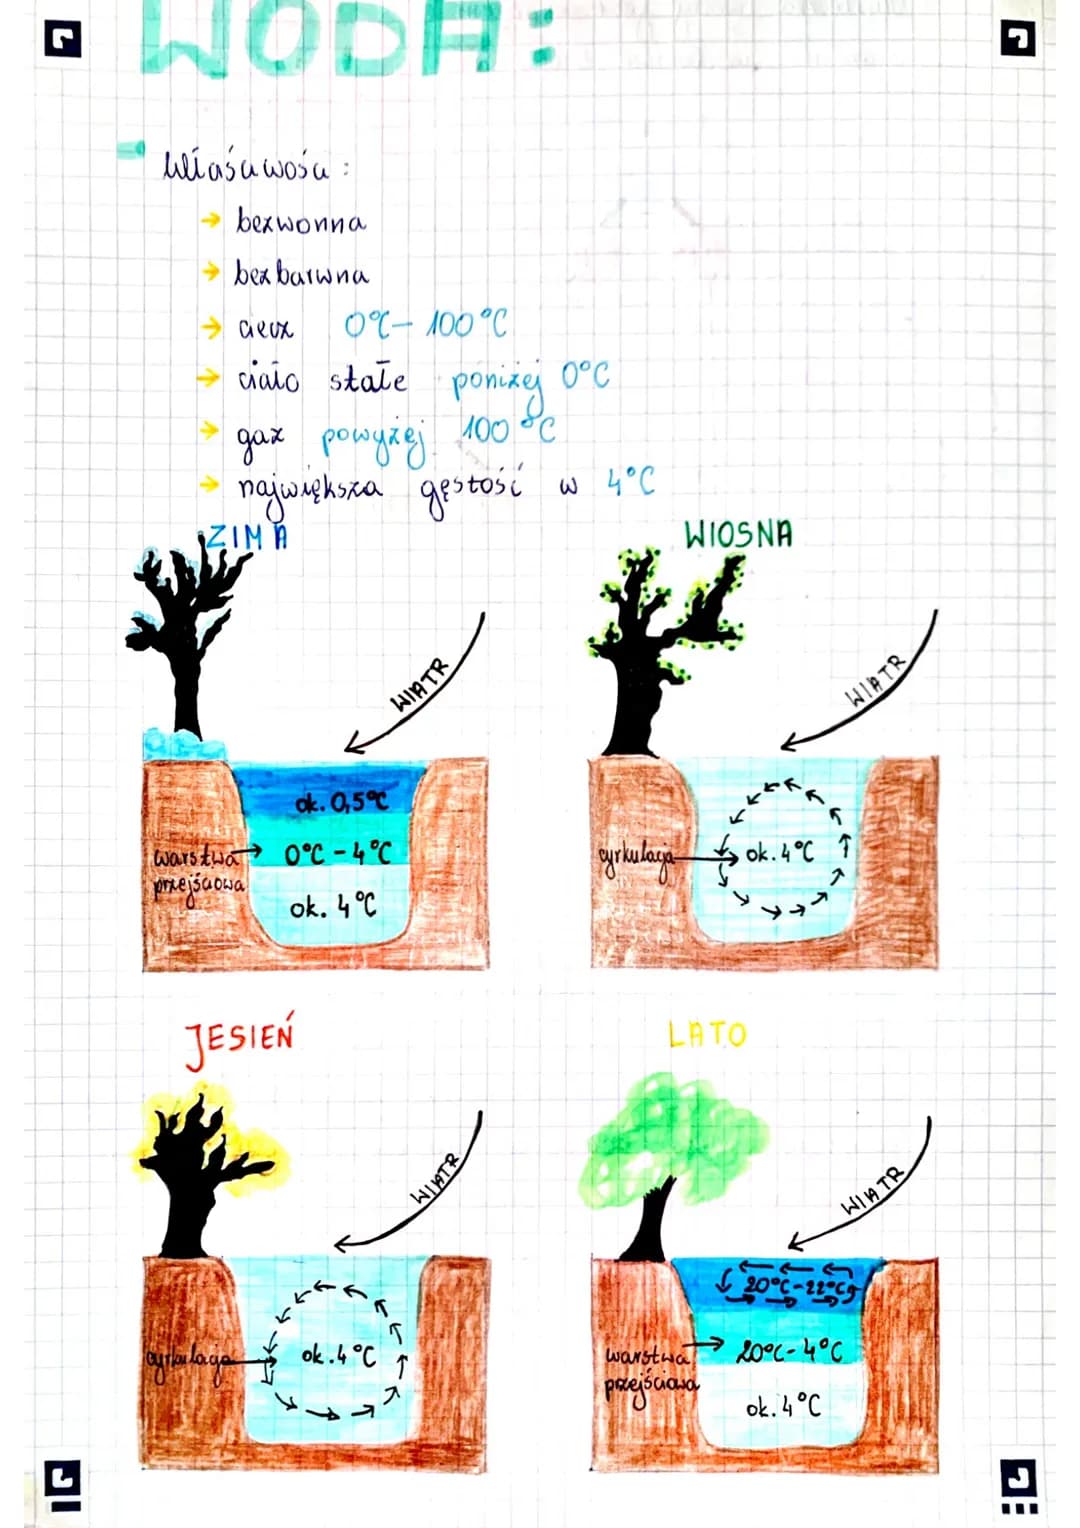 WODA:
Właściwości:
→ bezwonna
→ bezbarwna
→ ciecz 0°C - 100°C
→ ciało stałe poniżej 0°C
→ gaz powyżej 100°C
→ największa gęstość w 4°C
ZIMA
WIATR
ok. 0,5°C
warstwa przejściowa → 0°C - 4°C
ok. 4°C
WIOSNA
WIATR
cyrkulacja → ok. 4°C
JESIEŃ
WIATR
cyrkulacja → ok. 4°C
LATO
WIATR
20°C-22°C
warstwa przejściowa → 20°C - 4°C
ok. 4°C